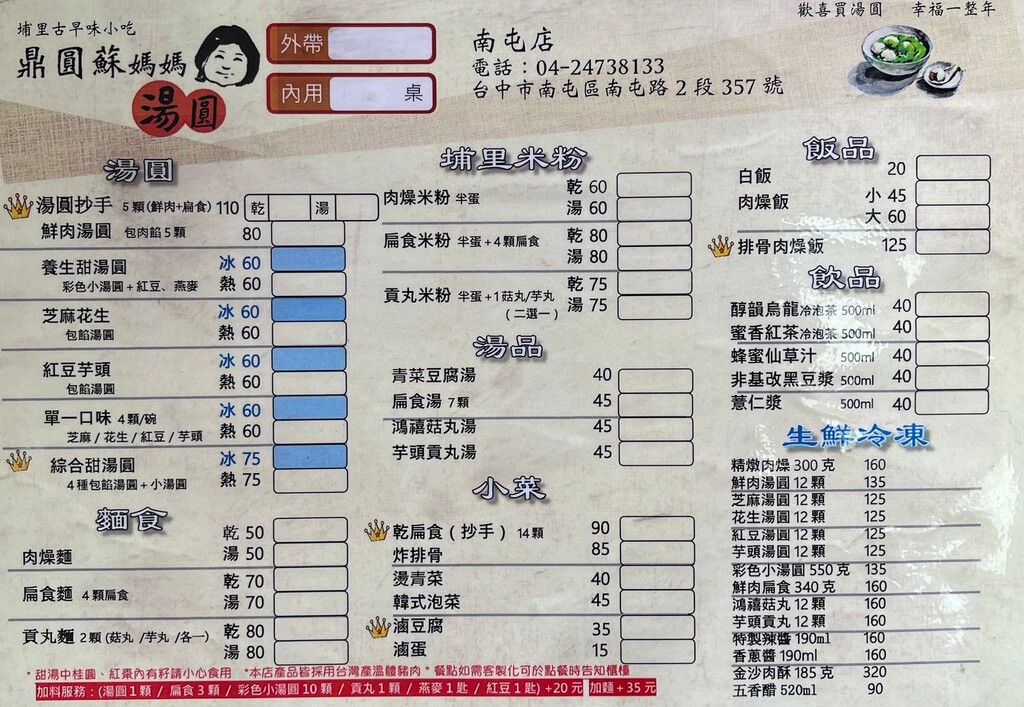 埔里古早味小吃
鼎圓蘇媽媽
湯圓
外帶
內用 桌
南屯店
電話：04-24738133
台中市南屯區南屯路2段357號
歡喜買湯圓 幸福一整年
湯圓
湯圓抄手 5顆(鮮肉+扁食) 110 乾 湯
鮮肉湯圓 包肉餡5顆 80
養生甜湯圓 冰 60
彩色小湯圓+紅豆、燕麥 熱 60
芝麻花生 冰 60
包餡湯圓 熱 60
紅豆芋頭 冰 60
包餡湯圓 熱 60
單一口味 4顆/碗 冰 60
芝麻/花生/紅豆/芋頭 熱 60
綜合甜湯圓 冰 75
4種包餡湯圓+小湯圓 熱 75
麵食
肉燥麵 乾 50
湯 50
扁食麵 4顆扁食 乾 70
湯 70
貢丸麵 2顆(菇丸/芋丸/各一) 乾 80
湯 80
埔里米粉
肉燥米粉 半蛋 乾 60
湯 60
扁食米粉 半蛋+4顆扁食 乾 80
湯 80
貢丸米粉 半蛋+1菇丸/芋丸 乾 75
(二選一) 湯 75
湯品
青菜豆腐湯 40
扁食湯 7顆 45
鴻禧菇丸湯 45
芋頭貢丸湯 45
小菜
乾扁食(抄手) 14顆 90
炸排骨 85
燙青菜 40
韓式泡菜 45
滷豆腐 35
滷蛋 15
飯品
白飯 20
肉燥飯 小 45
大 60
排骨肉燥飯 125
飲品
醇韻烏龍冷泡茶 500ml 40
蜜香紅茶冷泡茶 500ml 40
蜂蜜仙草汁 500ml 40
非基改黑豆漿 500ml 40
薏仁漿 500ml 40
生鮮冷凍
精燉肉燥 300克 160
鮮肉湯圓 12顆 135
芝麻湯圓 12顆 125
花生湯圓 12顆 125
紅豆湯圓 12顆 125
芋頭湯圓 12顆 125
彩色小湯圓 550克 135
鮮肉扁食 340克 160
鴻禧菇丸 12顆 160
芋頭貢丸 12顆 160
特製辣醬 190ml 160
香蔥醬 190ml 160
金沙肉酥 185克 320
五香醋 520ml 90
*甜湯中桂圓、紅棗內有籽請小心食用 *本店產品皆採用台灣產溫體豬肉 *餐點如需客製化可於點餐時告知櫃檯
加料服務：(湯圓1顆 / 扁食3顆 / 彩色小湯圓10顆 / 貢丸1顆 / 燕麥1匙 / 紅豆1匙) +20元 加麵+35元